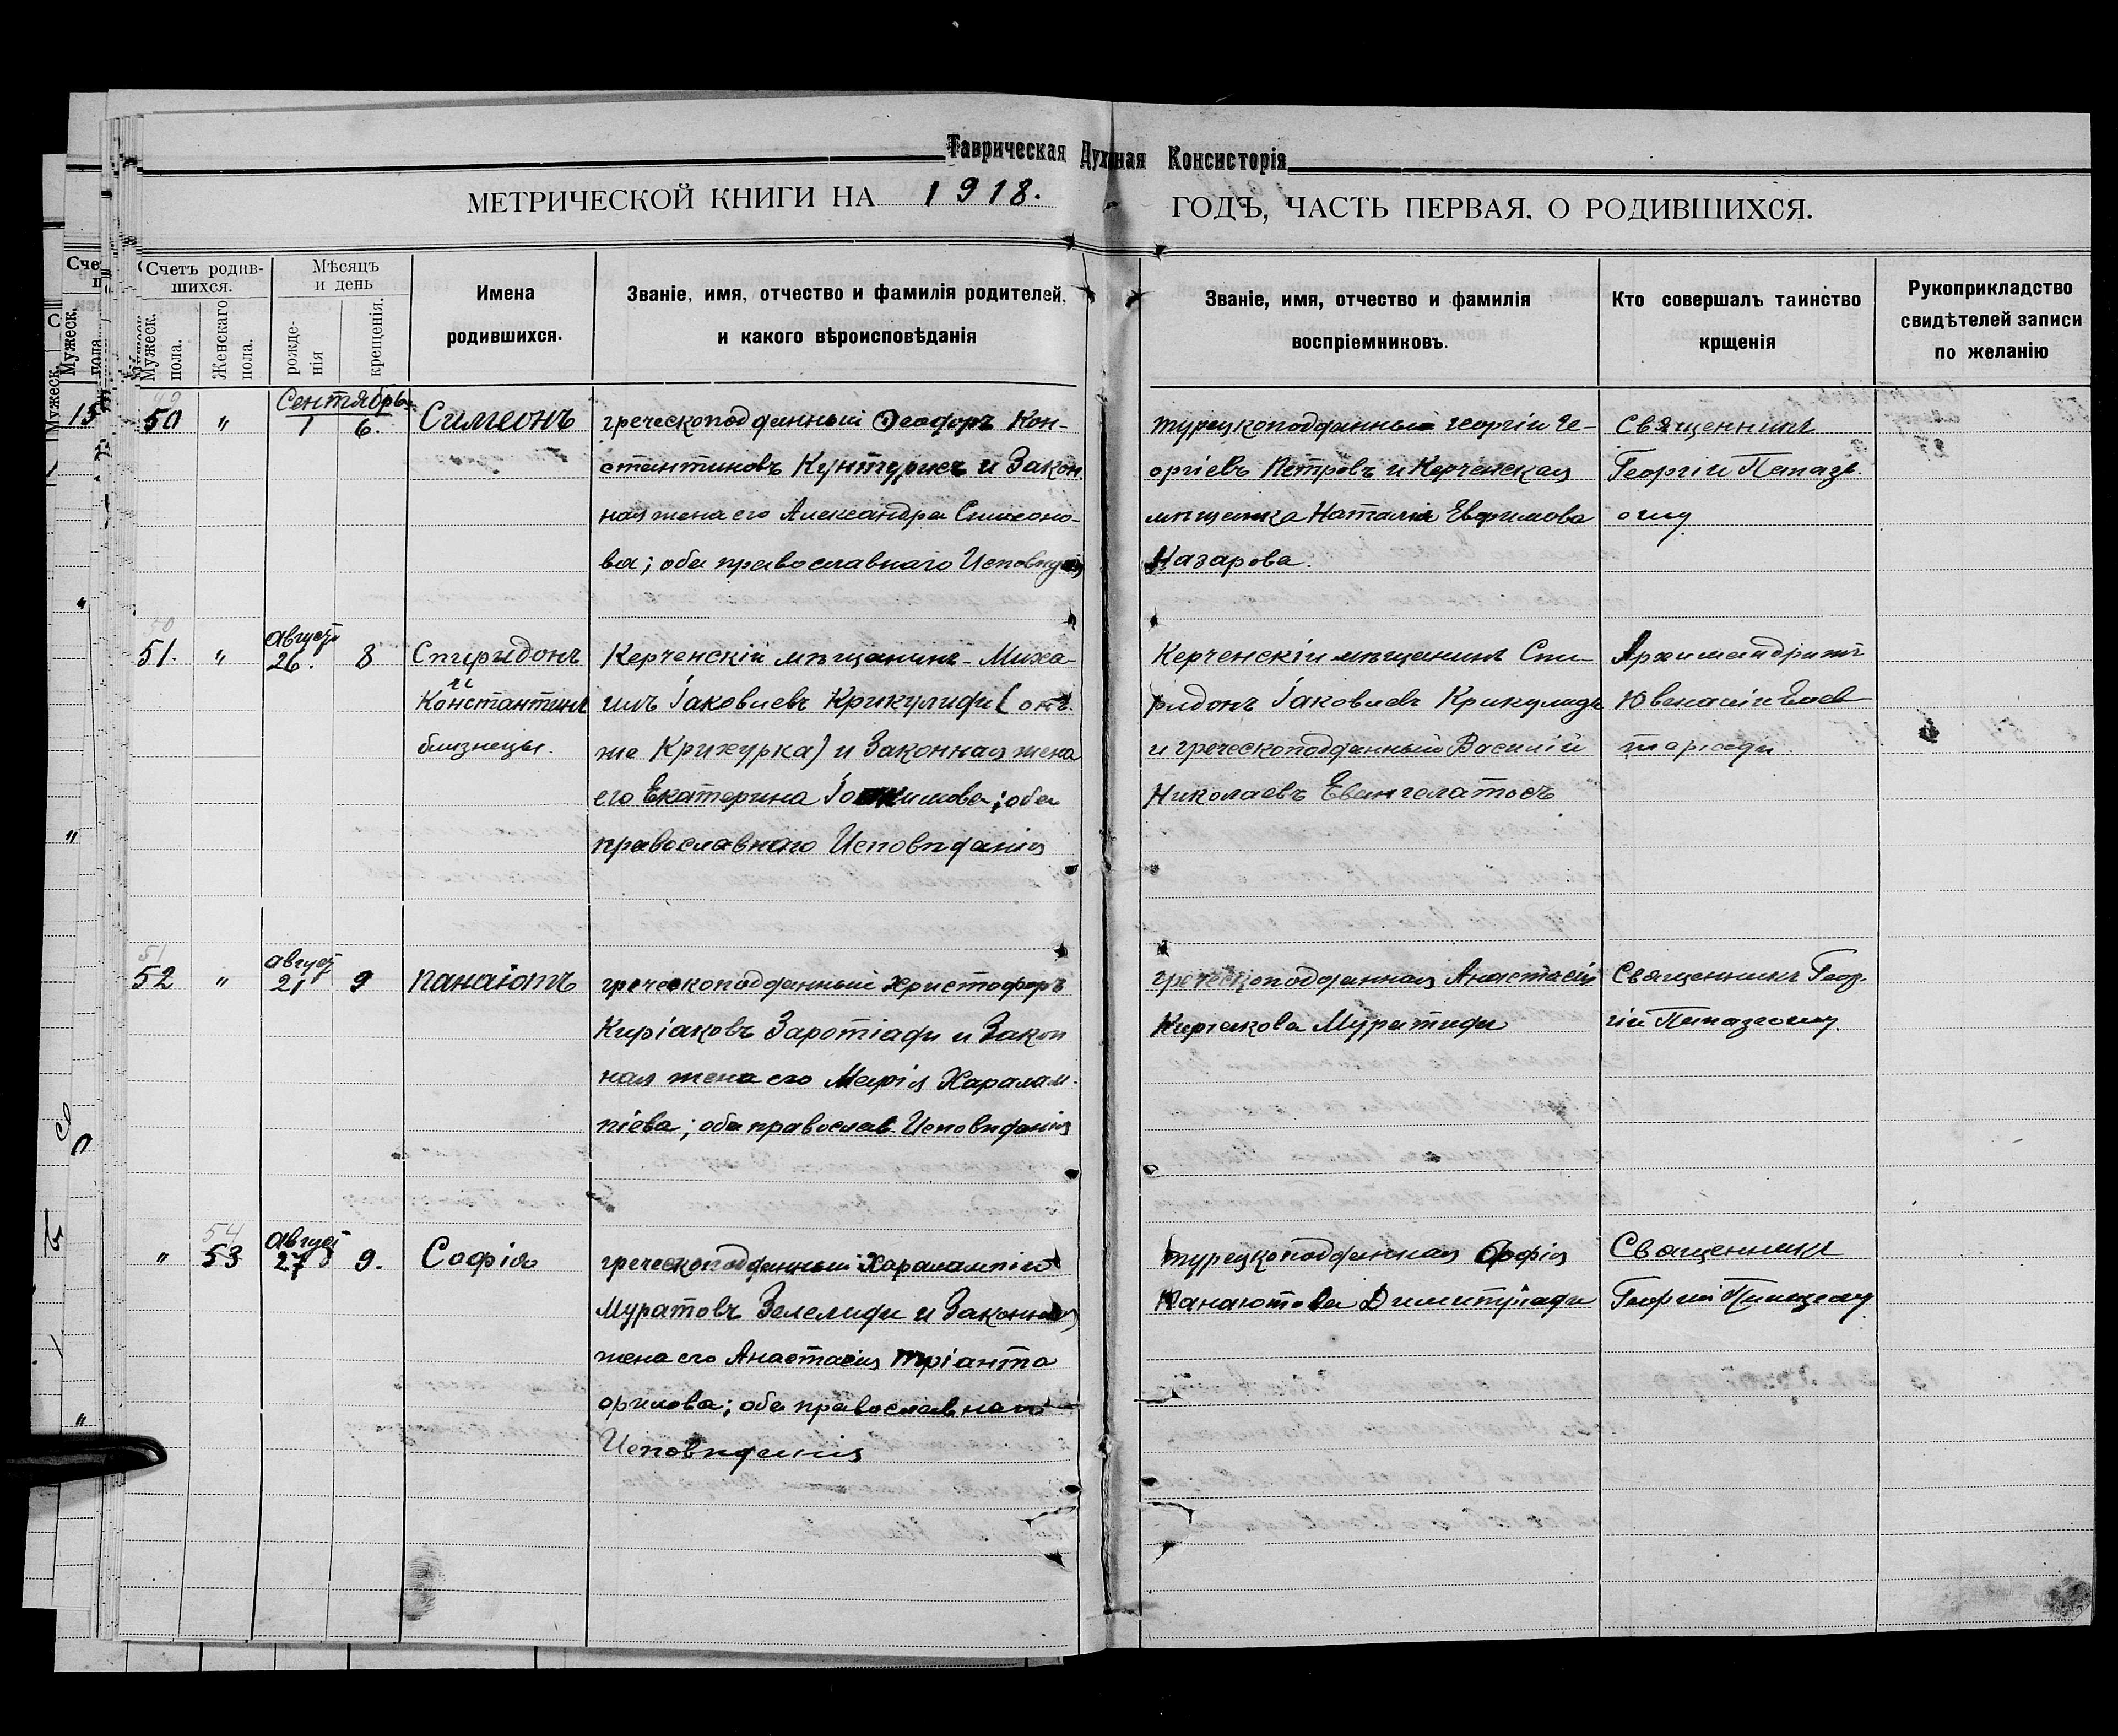 Таврическая Духовная Консисторія
МЕТРИЧЕСКОЙ КНИГИ НА 1918. ГОДЪ, ЧАСТЬ ПЕРВАЯ, О РОДИВШИХСЯ.
Счетъ родив-
шихся.
Мужеск.
пола.
Женскаго
пола.
Мѣсяцъ
и день
рожде-
нія
крещенія.
Имена
родившихся.
Званіе, имя, отчество и фамилія родителей,
и какого вѣроисповѣданія
Званіе, имя, отчество и фамилія
воспріемниковъ.
Кто совершалъ таинство
крщенія
Рукоприкладство
свидѣтелей записи
по желанію
49
50 " Сентябрь
1 6.
Симеонъ
греческоподданный Ѳеодоръ Кон-
стантиновъ Кунтурисъ и Закон.
ная жена его Александра Симеоно-
ва; оба православнаго
турецкоподданный Георгій Ге-
оргіевъ Петровъ и Керченская
мѣщанка Наталія Евфимова
Назарова.
Священникъ
Георгій Папаз-
оглу
50
51. " Август
26. 8
Спиридонъ
и
Константинъ
близнецы.
Керченскій мѣщанинъ Миха-
илъ Іаковлевъ Крикулиди (онъ
же Крихурка) и Законная жена
его Екатерина оба
православнаго Исповѣданія
Керченскій мѣщанинъ Спи-
ридонъ Іаковлевъ Крикулиди
и греческоподданный Василій
Николаевъ Евангелатосъ
Архимандритъ
Ювеналій Елев-
теріади
51
52 " Август
21 9
Панаіотъ
греческоподданный Христофоръ
Киріаковъ Заротіади и Закон
ная жена его Марія Харалам-
піева; оба православ. Исповѣданія
греческоподданная Анастасія
Киріакова Муратиди
Священникъ Геор-
гій Папазоглу.
54
" 53 Август
27 9.
Софія
греческоподданный Харалампій
Муратовъ Зелелиди и Законная
жена его Анастасія Тріанта
филова; оба православнаго
Исповѣданія
турецкоподданная Софія
Панаіотова Димитріади
Священникъ
Георгій Папазоглу